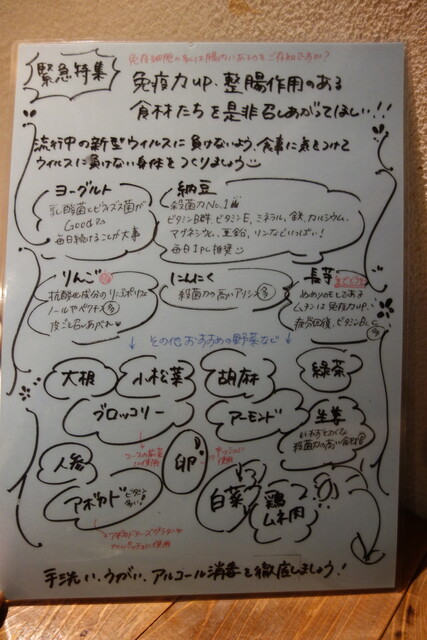 緊急特集
免疫細胞の多くは腸内にあるのをご存知ですか?
免疫力up、整腸作用のある
食材たちを是非召しあがってほしい!!
流行中の新型ウィルスに負けないよう、食事に気をつけて
ウィルスに負けない身体をつくりましょう
ヨーグルト
乳酸菌とビフィズス菌が
Good
毎日続けることが大事
納豆
殺菌力No.1
ビタミンB群、ビタミンE、ミネラル、鉄、カルシウム、
マグネシウム、亜鉛、リンなどいっぱい!
毎日1pc推奨
りんご
抗酸化成分のりんごポリフェ
ノールやペクチン多
皮ごと召しあがれ
にんにく
殺菌力の高いアリシン多
長芋
ムチンは免疫力up、
疲労回復、ビタミンB、C
多
↓その他おすすめの野菜など↓
大根
小松菜
胡麻
緑茶
ブロッコリー
アーモンド
生姜
殺菌力の高い食材
人参
卵
アボカド
ビタミン
白菜
鶏
ムネ肉
手洗い、うがい、アルコール消毒を徹底しましょう!